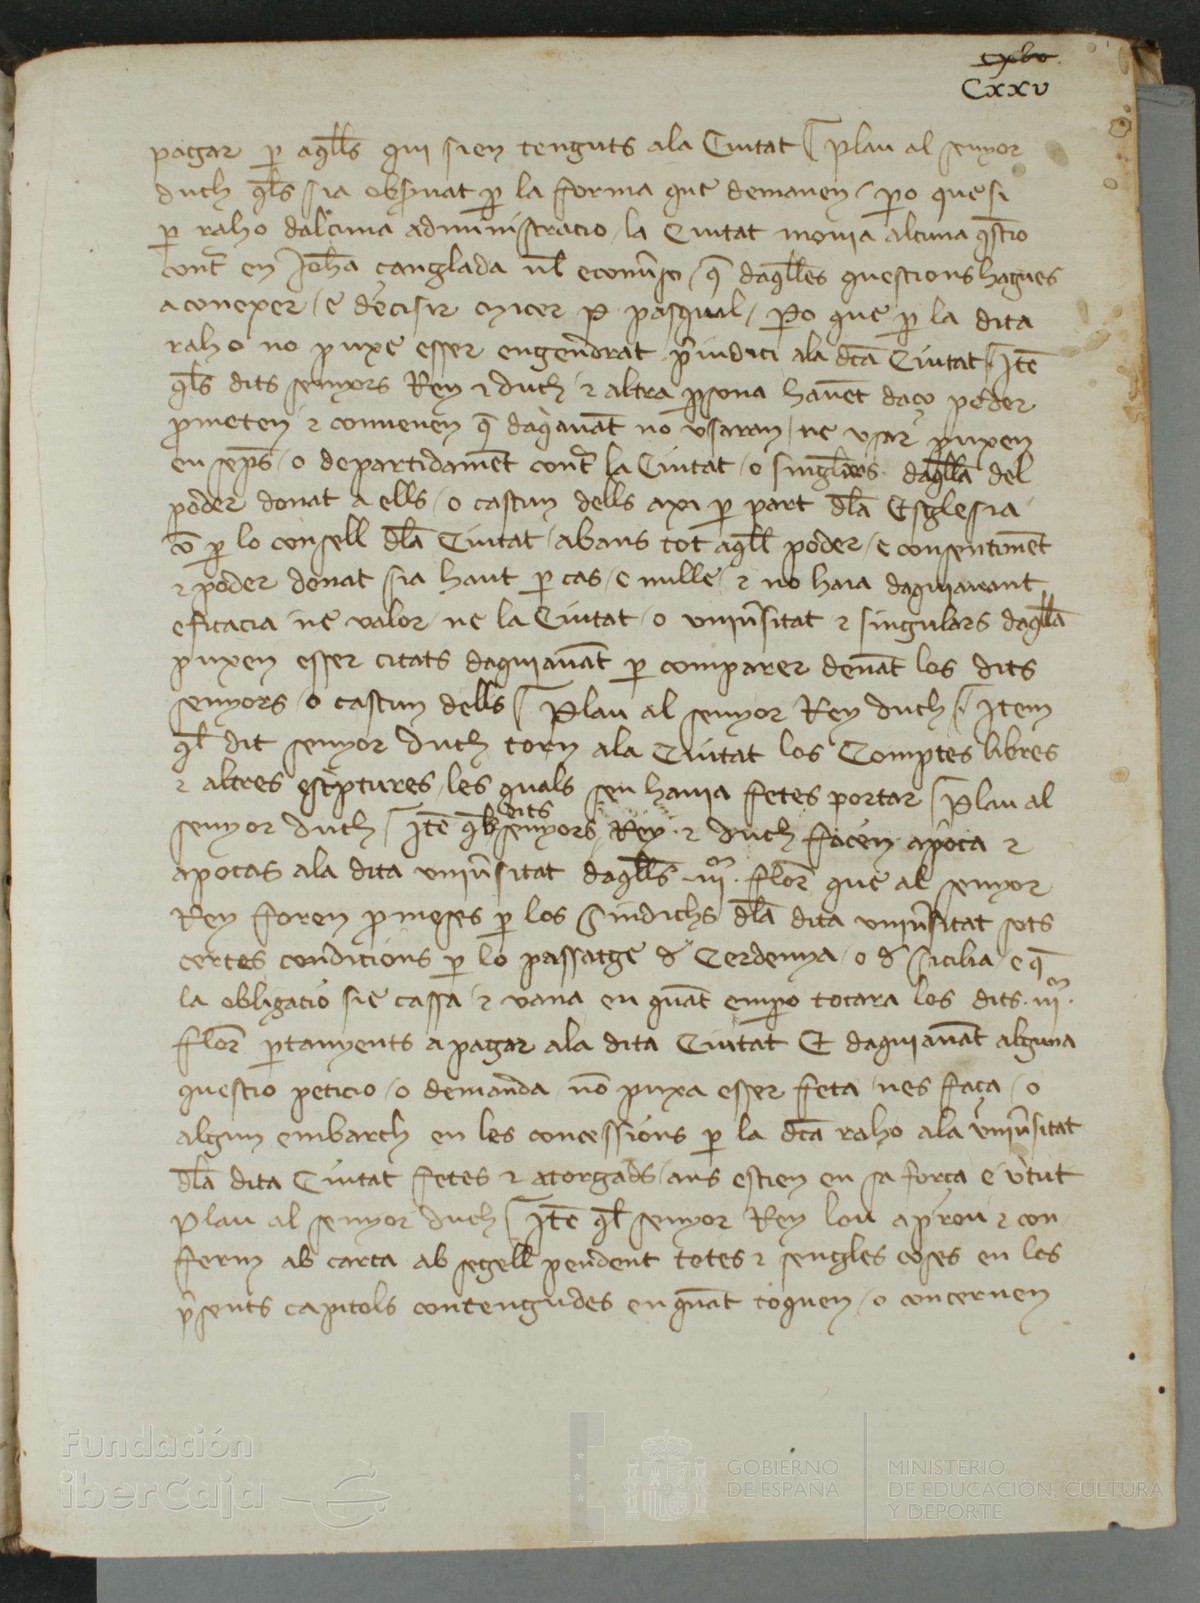 cxlv
Cxxv
pagar p̱ aq̄lls qui sien tenguts ala Ciutat Plau al senyor
duch q̄ls sia obs̄uat p̱ la forma que demanen / p̱o que si
p̱ raho dalcuna administracio / la Ciutat mouia alcuna q̄stio
cont̄ en Joh̄a çanglada / q̄ daq̄lles questions hagues
a conexer / e decisir micer p̱ pasqual / p̱o que p̱ la dita
raho no puxe esser engendrat p̄iudici ala dc̄a Ciutat Itē
q̄ls dits senyors Rey ⁊ duch ⁊ altra p̱sona hauēt daço poder
p̄meten ⁊ conuenen q̄ daq̄auāt no vsaran / ne vsar puxen
en semps̄ / o departidamēt cont̄ la Ciutat / o singlars daq̄lla del
poder donat a ells / o cascun dells axi p̱ part dl̄a Esglesia
o p̱ lo consell dl̄a Ciutat / abans tot aq̄ll poder / e consentimēt
⁊ poder donat sia haut p̱ cas / e nulle / ⁊ no haia daquiauant
eficacia ne valor / ne la Ciutat / o vniūsitat ⁊ singulars daq̄lla
puxen esser citats daquiauāt p̱ comparer deuāt los dits
senyors / o cascun dells Plau al senyor Rey duch Item
q̄l dit senyor duch torn ala Ciutat los Comptes libres
⁊ altres esc̄ptures / les quals sen hauia fetes portar Plau al
senyor duch Itē q̄ls dits senyors Rey ⁊ duch facen apoca ⁊
apocas ala dita vniūsitat daq̄lls .iii.ᵐ flor̄ que al senyor
Rey foren p̄meses p̱ los Sindichs dl̄a dita vniūsitat sots
certes condicions p̱ lo passatge d̄ Cerdenya / o d̄ Sicilia / e q̄
la obligacio sie cassa / ⁊ vana en quāt emp̱o tocara los dits .iii.ᵐ
flor̄ p̱tanyents a pagar ala dita Ciutat Et daquiauāt alguna
questio peticio / o demanda no puxa esser feta / nes faça / o
algun embarch en les concessions p̱ la dc̄a raho ala vniūsitat
dl̄a dita Ciutat fetes ⁊ atorgads / ans estien en sa força e v̄tut
Plau al senyor duch Itē q̄l senyor Rey lou aprou ⁊ con
ferm ab carta ab segell pendent totes ⁊ sengles coses en los
p̄sents capitols contengudes en quāt toquen / o concernen
Fundación
iberCaja
GOBIERNO
DE ESPAÑA
MINISTERIO
DE EDUCACIÓN, CULTURA
Y DEPORTE